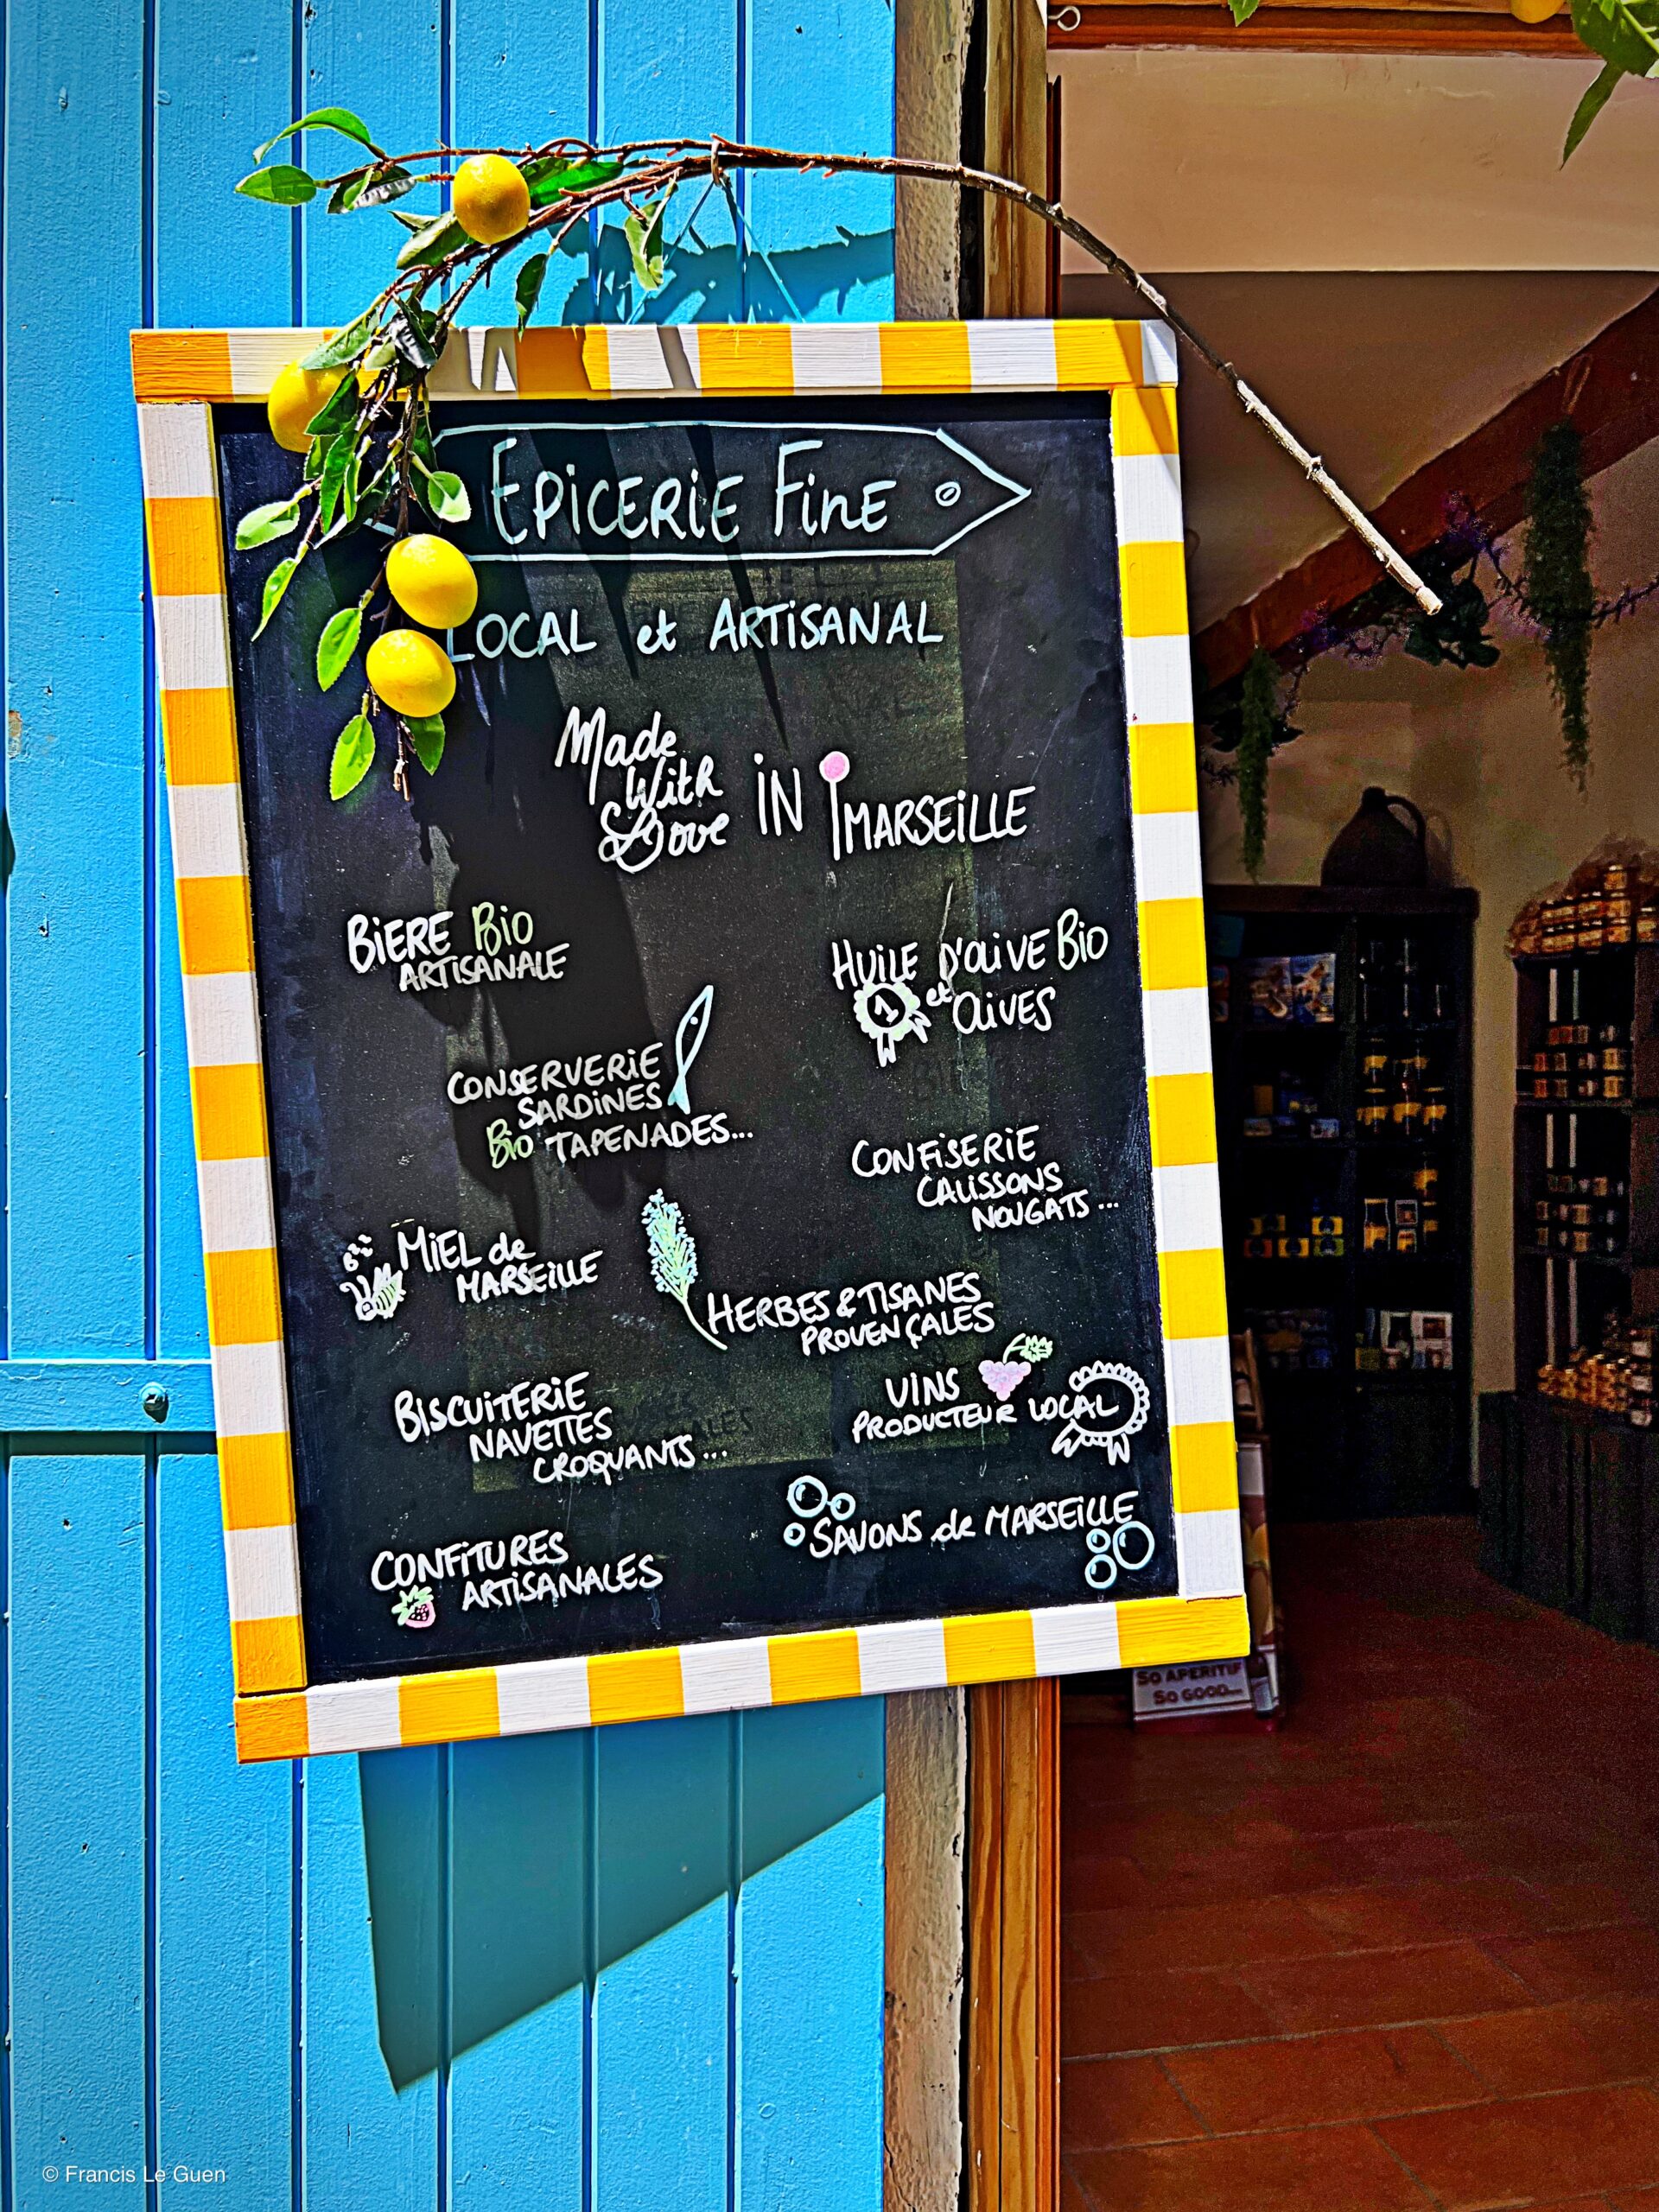 EPiCERiE FiNE
LOCAL et ARTiSANAL
Made
With
Love
iN MARSEiLLE
BiERE Bio
ARTiSANALE
HUiLE D'OLiVE Bio
1
et
OLiVES
CONSERVERiE
SARDiNES
Bio TAPENADES...
CONFiSERiE
CALiSSONS
NOUGATS...
MiEL de
MARSEiLLE
HERBES & TiSANES
PROVENÇALES
BiSCUiTERiE
NAVETTES
CROQUANTS...
ViNS
PRODUCTEUR LOCAL
SAVONS de MARSEiLLE
CONFiTURES
ARTiSANALES
SO APERITIF
SO GOOD...
© Francis Le Guen